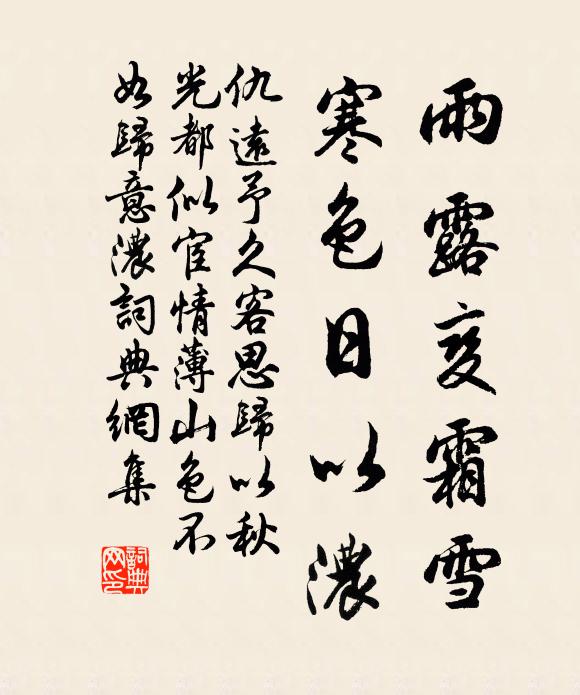 雨露变霜雪
寒色日以濃
仇遠予久客思歸以秋
光都似宦情薄山色不
如歸意濃詞典網集
詞典
网印